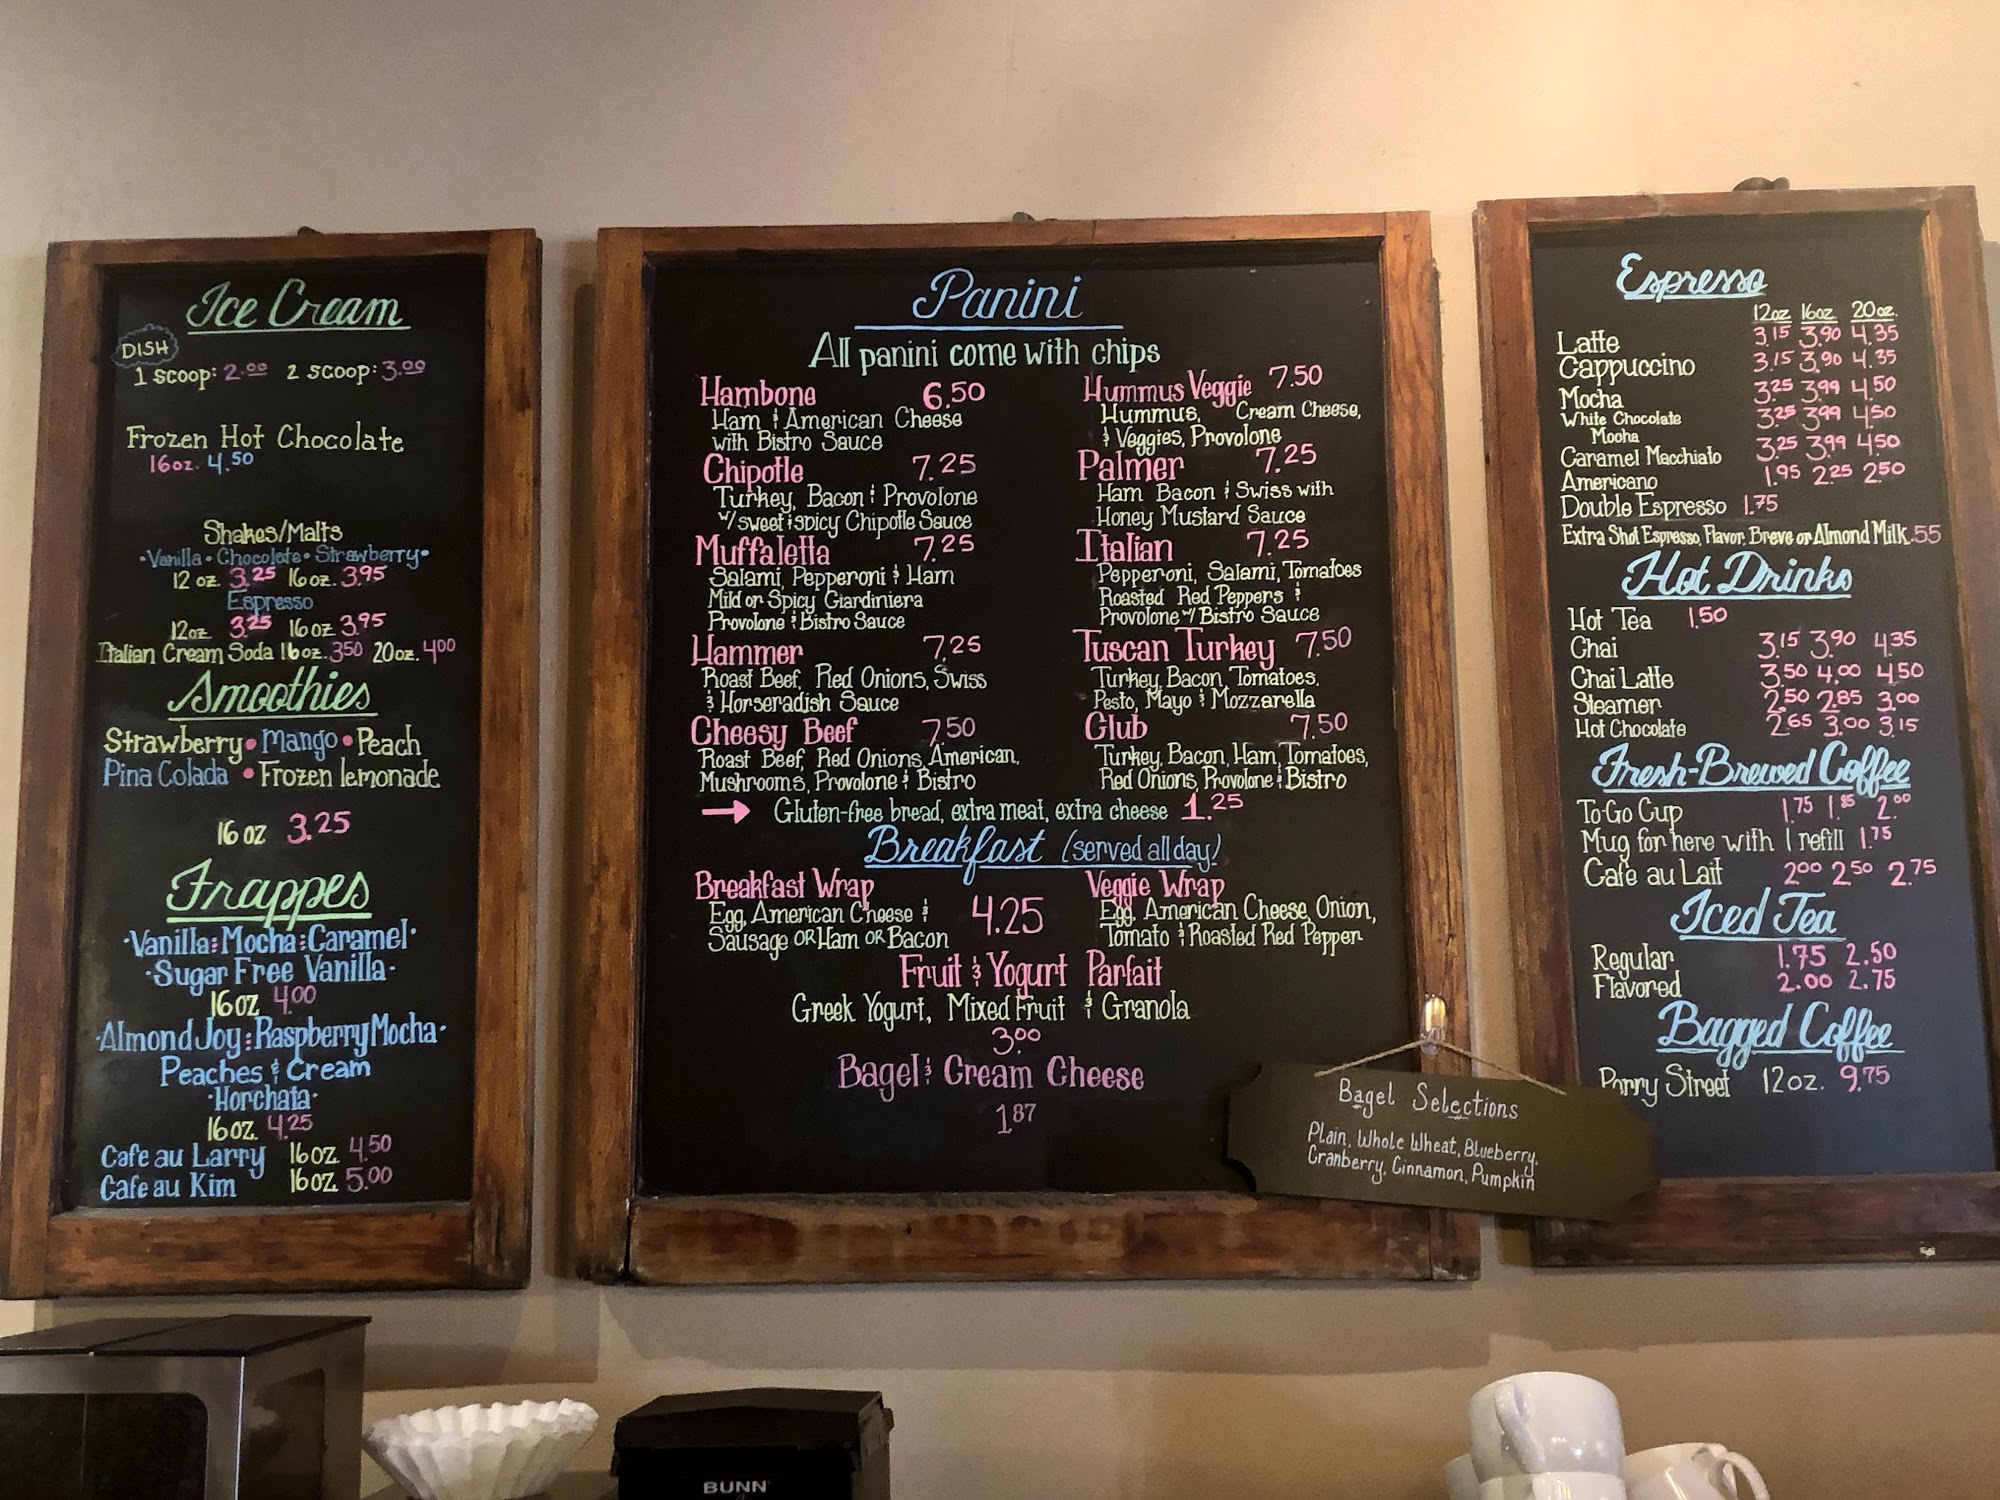 Ice Cream
DISH
1 scoop: 2.00 2 scoop: 3.00
Frozen Hot Chocolate
16oz. 4.50
Shakes/Malts
•Vanilla•Chocolate•Strawberry•
12 oz. 3.25 16oz. 3.95
Espresso
12oz 3.25 16oz 3.95
Italian Cream Soda 16oz. 3.50 20oz. 4.00
Smoothies
Strawberry•Mango•Peach
Pina Colada •Frozen lemonade
16oz 3.25
Frappes
·Vanilla:Mocha:Caramel·
·Sugar Free Vanilla·
16oz 4.00
·Almond Joy:Raspberry Mocha·
Peaches & Cream
·Horchata·
16oz. 4.25
Cafe au Larry 16oz. 4.50
Cafe au Kim 16oz. 5.00
Panini
All panini come with chips
Hambone 6.50
Ham & American Cheese
with Bistro Sauce
Chipotle 7.25
Turkey, Bacon & Provolone
w/ sweet & spicy Chipotle Sauce
Muffaletta 7.25
Salami, Pepperoni & Ham
Mild or Spicy Giardiniera
Provolone & Bistro Sauce
Hammer 7.25
Roast Beef, Red Onions, Swiss
& Horseradish Sauce
Cheesy Beef 7.50
Roast Beef, Red Onions, American,
Mushrooms, Provolone & Bistro
Hummus Veggie 7.50
Hummus, Cream Cheese,
& Veggies, Provolone
Palmer 7.25
Ham Bacon & Swiss with
Honey Mustard Sauce
Italian 7.25
Pepperoni, Salami, Tomatoes
Roasted Red Peppers &
Provolone w/ Bistro Sauce
Tuscan Turkey 7.50
Turkey, Bacon, Tomatoes,
Pesto, Mayo & Mozzarella
Club 7.50
Turkey, Bacon, Ham, Tomatoes,
Red Onions, Provolone & Bistro
→ Gluten-free bread, extra meat, extra cheese 1.25
Breakfast (served all day!)
Breakfast Wrap
Egg, American Cheese &
Sausage OR Ham OR Bacon
4.25
Veggie Wrap
Egg, American Cheese, Onion,
Tomato & Roasted Red Pepper
Fruit & Yogurt Parfait
Greek Yogurt, Mixed Fruit & Granola
3.00
Bagel & Cream Cheese
1.87
Bagel Selections
Plain, Whole Wheat, Blueberry,
Cranberry, Cinnamon, Pumpkin
Espresso
12oz 16oz 20oz.
Latte 3.15 3.90 4.35
Cappuccino 3.15 3.90 4.35
Mocha 3.25 3.99 4.50
White Chocolate 3.25 3.99 4.50
Mocha
Caramel Macchiato 3.25 3.99 4.50
Americano 1.95 2.25 2.50
Double Espresso 1.75
Extra Shot Espresso, Flavor, Breve or Almond Milk .55
Hot Drinks
Hot Tea 1.50
Chai 3.15 3.90 4.35
Chai Latte 3.50 4.00 4.50
Steamer 2.50 2.85 3.00
Hot Chocolate 2.65 3.00 3.15
Fresh-Brewed Coffee
To-Go Cup 1.75 1.85 2.00
Mug for here with 1 refill 1.75
Cafe au Lait 2.00 2.50 2.75
Iced Tea
Regular 1.75 2.50
Flavored 2.00 2.75
Bagged Coffee
Street 12oz. 9.75
BUNN